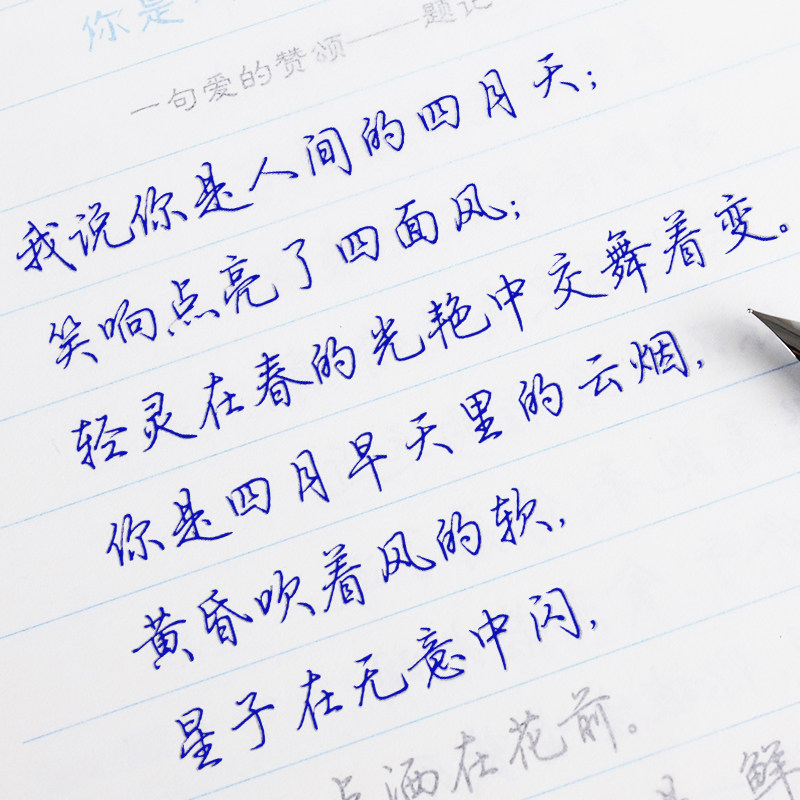 你是
一句爱的赞颂——题记
我说你是人间的四月天；
笑响点亮了四面风；
轻灵在春的光艳中交舞着变。
你是四月早天里的云烟，
黄昏吹着风的软，
星子在无意中闪，
点洒在花前。
是 鲜